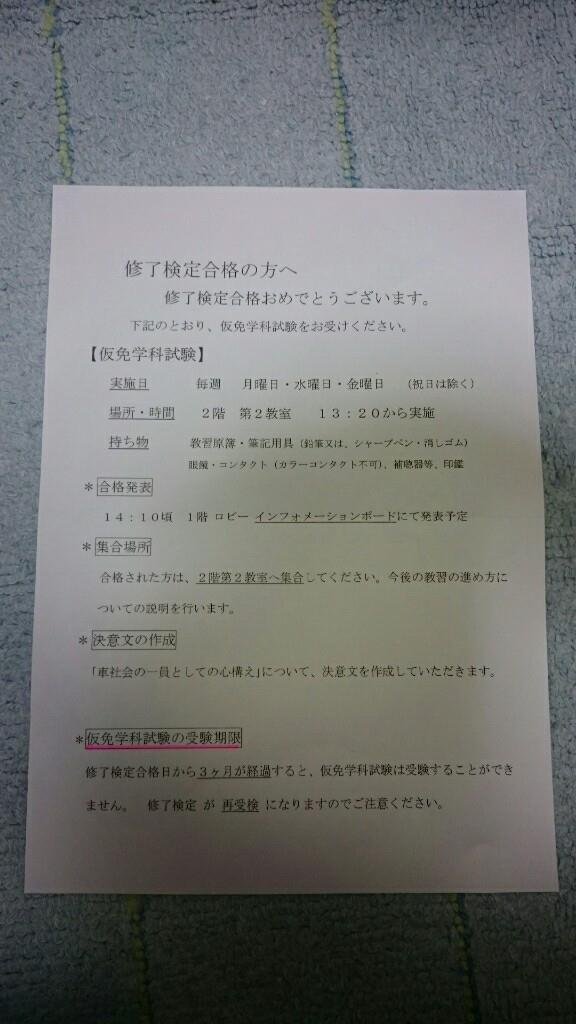 修了検定合格の方へ
修了検定合格おめでとうございます。
下記のとおり、仮免学科試験をお受けください。
【仮免学科試験】
実施日 毎週 月曜日・水曜日・金曜日 (祝日は除く)
場所・時間 2階 第2教室 13:20から実施
持ち物 教習原簿・筆記用具(鉛筆又は、シャープペン・消しゴム)
眼鏡・コンタクト(カラーコンタクト不可)、補聴器等、印鑑
*合格発表
14:10頃 1階 ロビー インフォメーションボードにて発表予定
*集合場所
合格された方は、2階第2教室へ集合してください。今後の教習の進め方に
ついての説明を行います。
*決意文の作成
「車社会の一員としての心構え」について、決意文を作成していただきます。
*仮免学科試験の受験期限
修了検定合格日から3ヶ月が経過すると、仮免学科試験は受験することができ
ません。 修了検定 が 再受検 になりますのでご注意ください。